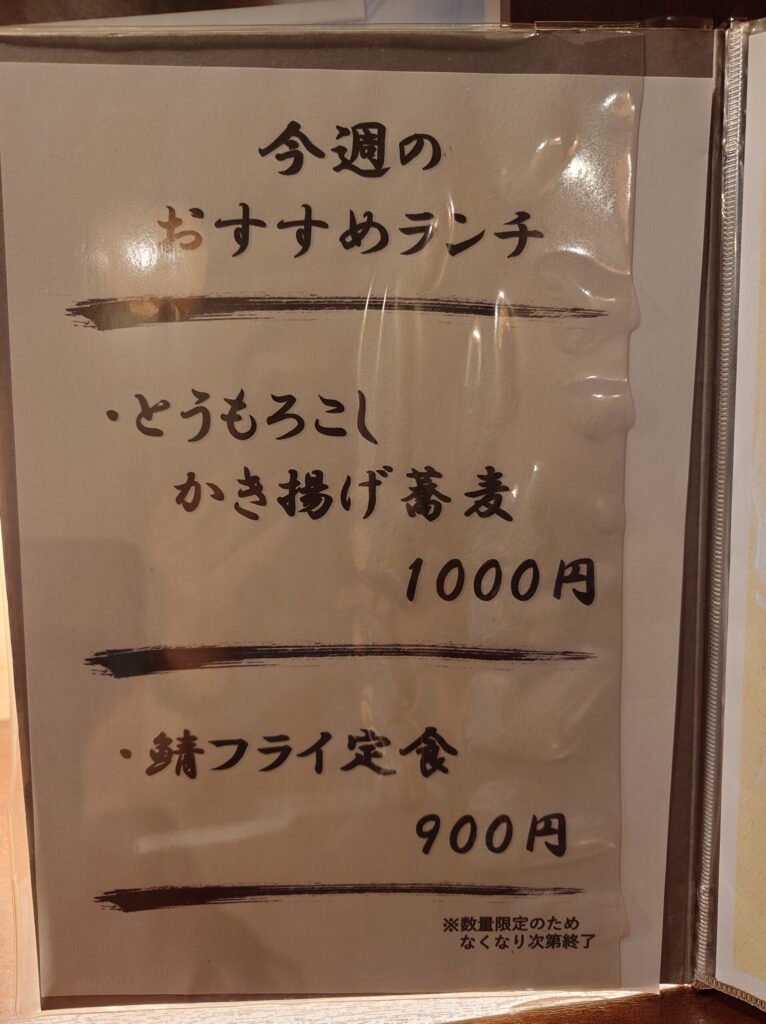 今週の
おすすめランチ
・とうもろこし
かき揚げ蕎麦
1000円
・鯖フライ定食
900円
※数量限定のため
なくなり次第終了